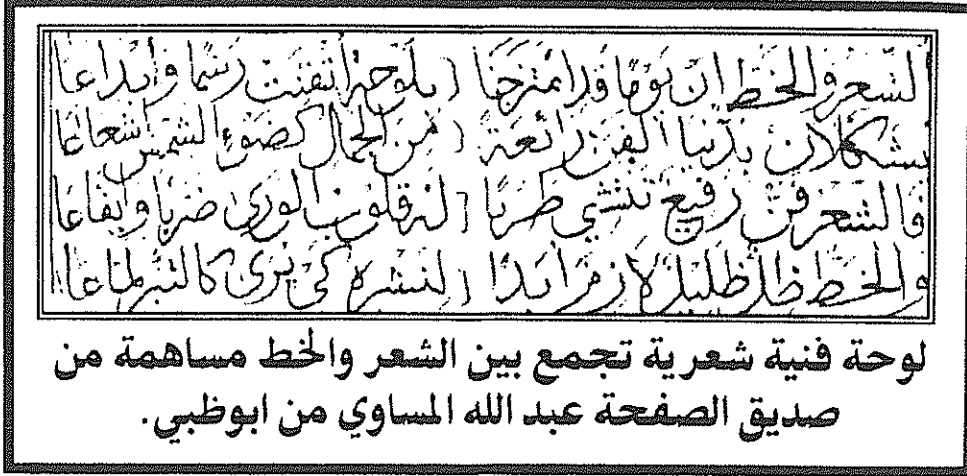 الشعر والخط ان يوما قد امتزجا بلوحة اتقنت رسما وابداعا
يشكلان بدنيا الفن رائعة من الجمال كضوء الشمس اشعاعا
فالشعر فن رفيع تنتشي طربا له قلوب الورى ضربا وايقاعا
والخط ظل ظليل لازم ابدا لنشره كي يرى كالتبر لماعا
لوحة فنية شعرية تجمع بين الشعر والخط مساهمة من
صديق الصفحة عبد الله المساوي من ابوظبي.